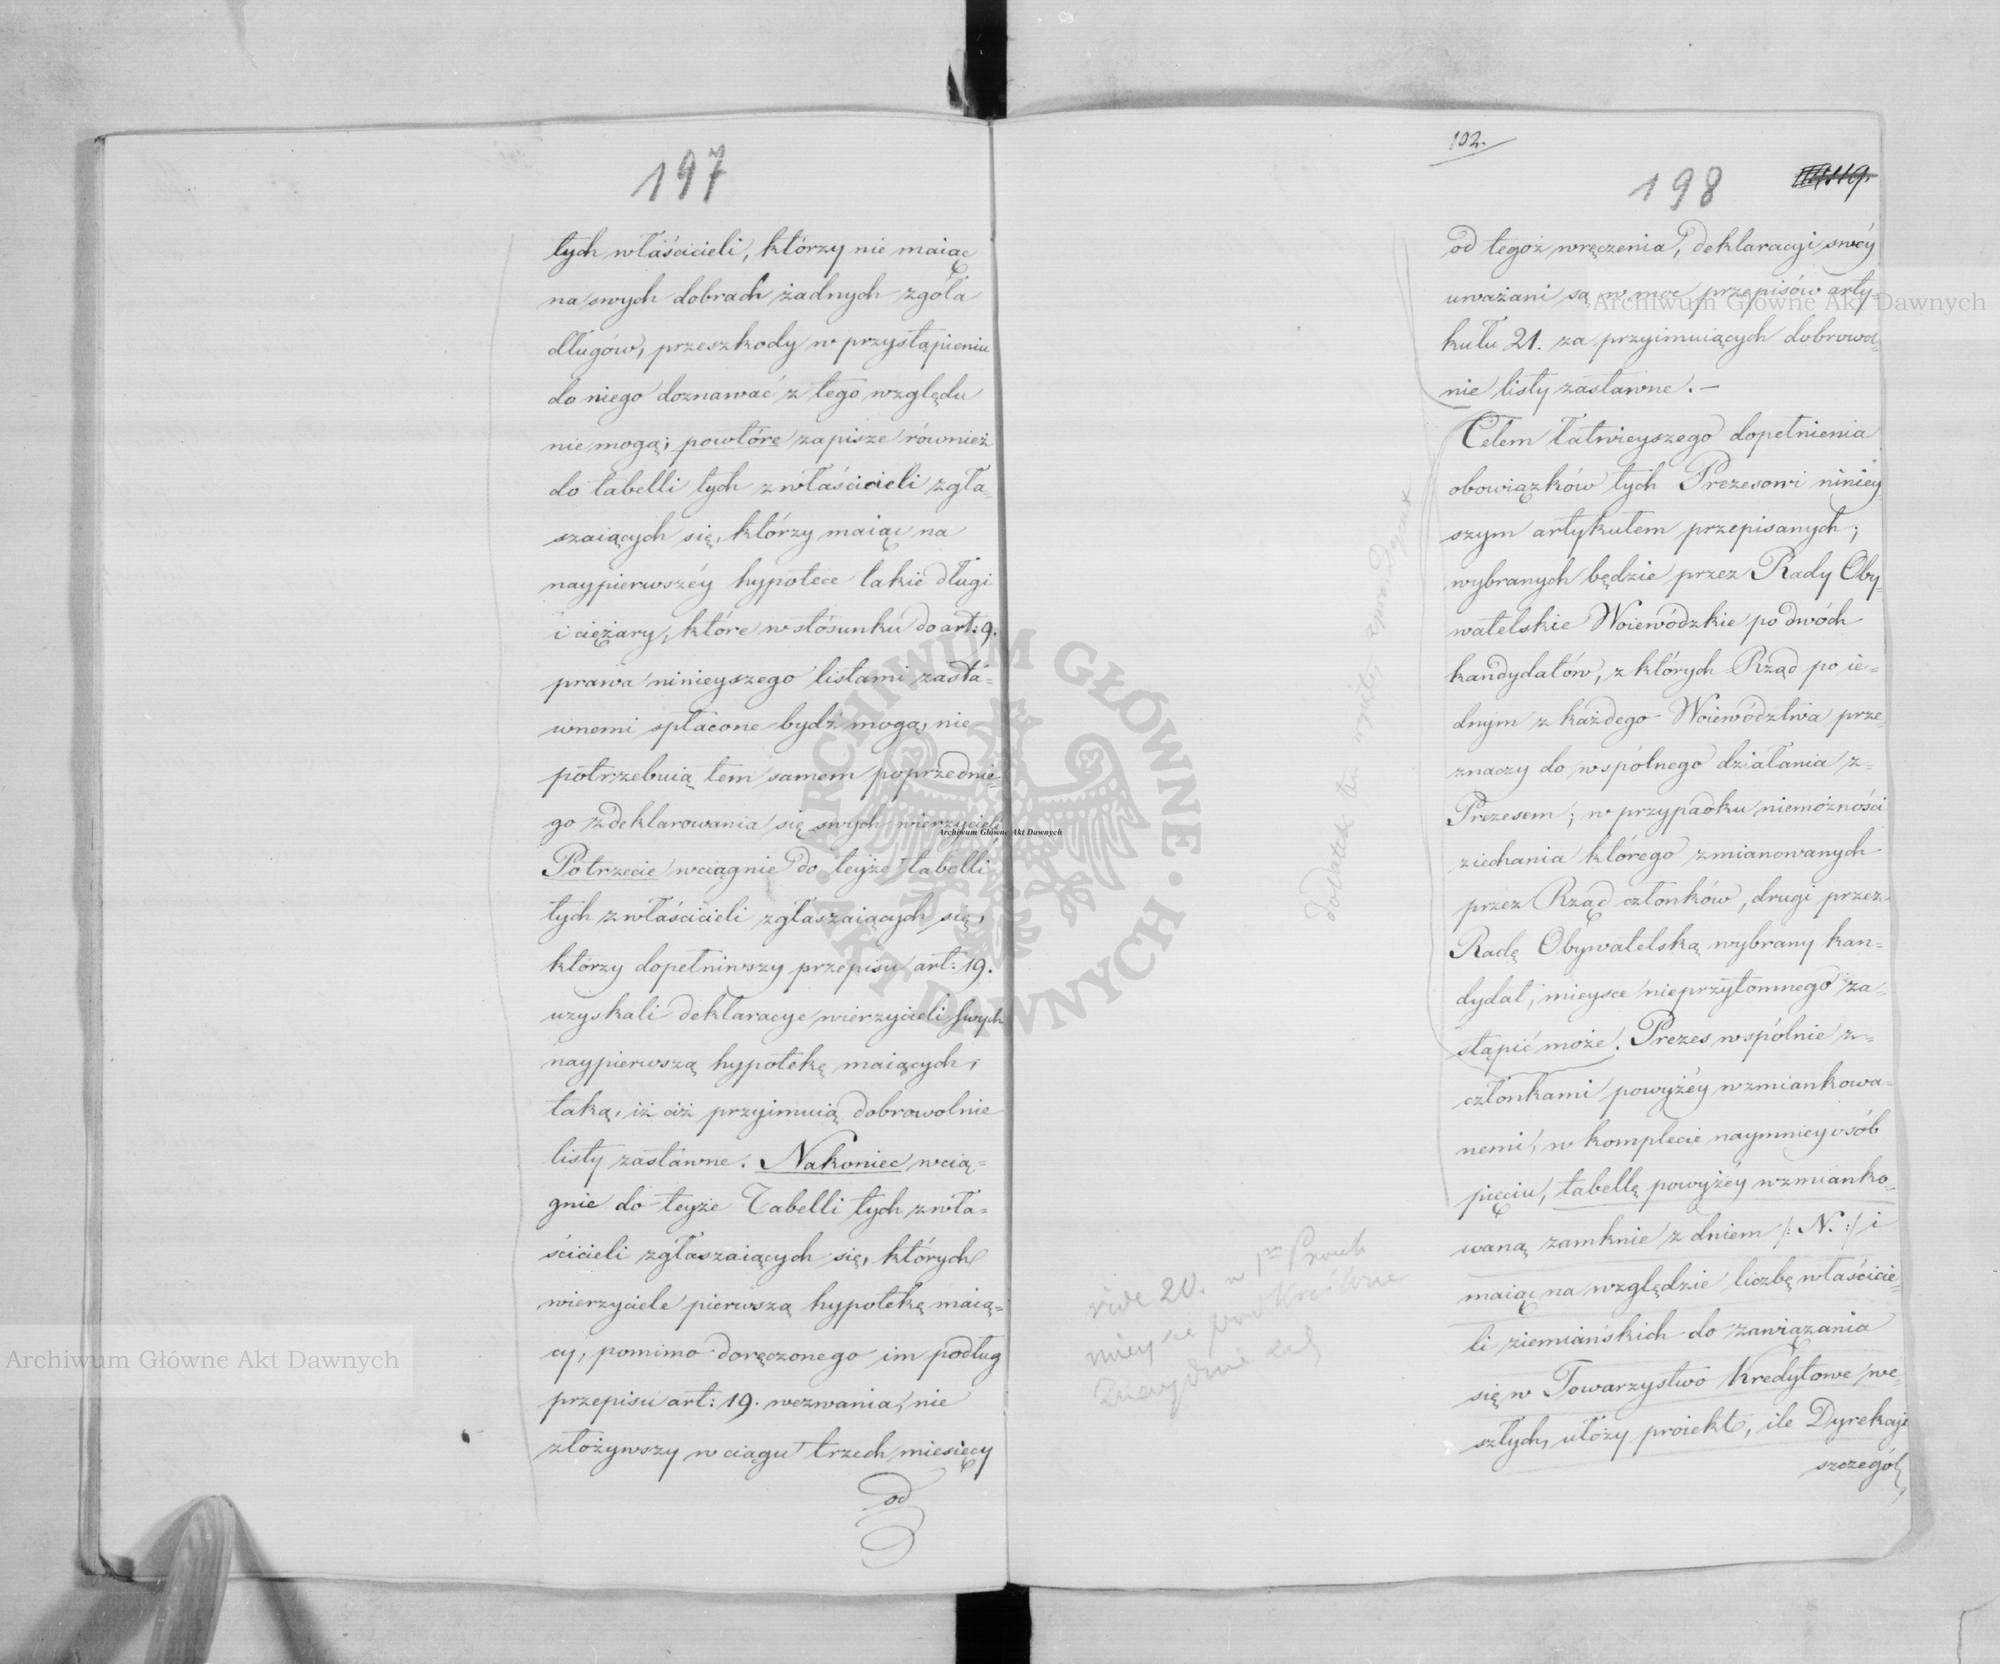 197
tych właścicieli, którzy nie maiąc
na swych dobrach żadnych zgoła
długów, przeszkody w przystąpieniu
do niego doznawać z tego względu
nie mogą; powtóre zapisze również
do tabelli tych z właścicieli zgła-
szaiących się, którzy maiąc na
naypierwszéy hypotece takie długi
i ciężary, które w stósunku do art: 9.
prawa ninieyszego listami zasta-
wnemi spłacone bydź mogą, nie
potrzebuią tem samem poprzednie-
go zdeklarowania się swych wierzycieli
Potrzecie wciągnie do teyże tabelli
tych z właścicieli zgłaszaiących się,
którzy dopełniwszy przepisu art: 19.
uzyskali deklaracye wierzycieli swych
naypierwszą hypotekę maiących,
taką, iż ciż przyimuią dobrowolnie
listy zastawne. Nakoniec wcią-
gnie do teyże Tabelli tych z wła-
ścicieli zgłaszaiących się, których
wierzyciele pierwszą hypotekę maią-
cy, pomimo doręczonego im podług
przepisu art: 19. wezwania, nie
złożywszy w ciągu trzech miesięcy
od
102.
198
od tegoż wręczenia, deklaracyi swéy
uważani są w moc przepisów arty-
kułu 21. za przyimuiących dobrowol-
nie listy zastawne. —
Celem łatwieyszego dopełnienia
obowiązków tych Prezesowi niniey-
szym artykułem przepisanych;
wybranych będzie przez Rady Oby-
watelskie Woiewódzkie po dwóch
kandydatów, z których Rząd po ie-
dnym z każdego Woiewództwa prze-
znaczy do wspólnego działania z
Prezesem; w przypadku niemożności
ziechania którego z mianowanych
przez Rząd członków, drugi przez
Radę Obywatelską wybrany kan-
dydat, mieysce nieprzytomnego za-
stąpić może. Prezes wspólnie z
członkami powyżéy wzmiankowa-
nemi, w komplecie naymniey osób
pięciu, tabellę powyżéy wzmianko-
waną zamknie z dniem /: N. :/ i
maiąc na względzie liczbę właścicie-
li ziemiańskich do zawiązania
się w Towarzystwo Kredytowe we-
szłych, ułoży proiekt, ile Dyrekcyi
szczegół,
dodatek tu wzięty
vide 20. w 1m
Archiwum Główne Akt Dawnych
Archiwum Główne Akt Dawnych
Archiwum Główne Akt Dawnych
ARCHIWUM GŁÓWNE · AKT DAWNYCH ·